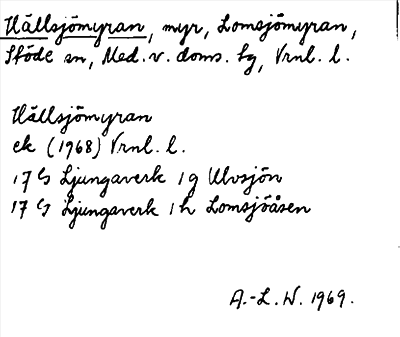 Hällsjömyran, myr, Lomsjömyran,
Stöde sn, Med. v. doms. hg, Vrnl. l.
Hällsjömyran
ek (1968) Vrnl. l.
17 G Ljungaverk 1 g Ulvsjön
17 G Ljungaverk 1 h Lomsjöåsen
A.-L. W. 1969.